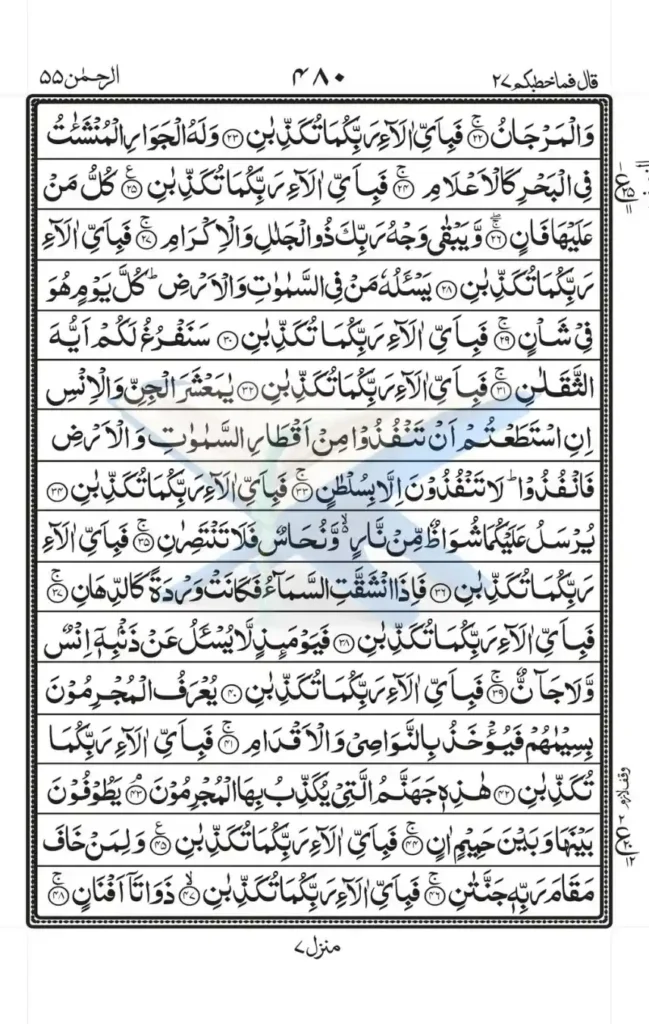 قال فما خطبكم ٢٧
٤٨٠
الرحمٰن ٥٥
وَالۡمَرۡجَانُ ﴿٢٢﴾ۚ فَبِاَىِّ اٰلَاۤءِ رَبِّكُمَا تُكَذِّبٰنِ ﴿٢٣﴾ وَلَهُ الۡجَوَارِ الۡمُنۡشَئٰتُ
فِى الۡبَحۡرِ كَالۡاَعۡلَامِ ﴿٢٤﴾ۚ فَبِاَىِّ اٰلَاۤءِ رَبِّكُمَا تُكَذِّبٰنِ ﴿٢٥﴾ كُلُّ مَنۡ
عَلَيۡهَا فَانٍ ﴿٢٦﴾ وَّيَبۡقٰى وَجۡهُ رَبِّكَ ذُو الۡجَلٰلِ وَالۡاِكۡرَامِ ﴿٢٧﴾ۚ فَبِاَىِّ اٰلَاۤءِ
رَبِّكُمَا تُكَذِّبٰنِ ﴿٢٨﴾ يَسۡـَٔلُهٗ مَنۡ فِى السَّمٰوٰتِ وَالۡاَرۡضِ ؕ كُلَّ يَوۡمٍ هُوَ
فِىۡ شَاۡنٍ ﴿٢٩﴾ۚ فَبِاَىِّ اٰلَاۤءِ رَبِّكُمَا تُكَذِّبٰنِ ﴿٣٠﴾ سَنَفۡرُغُ لَكُمۡ اَيُّهَ
الثَّقَلٰنِ ﴿٣١﴾ۚ فَبِاَىِّ اٰلَاۤءِ رَبِّكُمَا تُكَذِّبٰنِ ﴿٣٢﴾ يٰمَعۡشَرَ الۡجِنِّ وَالۡاِنۡسِ
اِنِ اسۡتَطَعۡتُمۡ اَنۡ تَنۡفُذُوۡا مِنۡ اَقۡطَارِ السَّمٰوٰتِ وَالۡاَرۡضِ
فَانۡفُذُوۡا ؕ لَا تَنۡفُذُوۡنَ اِلَّا بِسُلۡطٰنٍ ﴿٣٣﴾ۚ فَبِاَىِّ اٰلَاۤءِ رَبِّكُمَا تُكَذِّبٰنِ ﴿٣٤﴾
يُرۡسَلُ عَلَيۡكُمَا شُوَاظٌ مِّنۡ نَّارٍ ۙ وَّنُحَاسٌ فَلَا تَنۡتَصِرٰنِ ﴿٣٥﴾ۚ فَبِاَىِّ اٰلَاۤءِ
رَبِّكُمَا تُكَذِّبٰنِ ﴿٣٦﴾ فَاِذَا انۡشَقَّتِ السَّمَآءُ فَكَانَتۡ وَرۡدَةً كَالدِّهَانِ ﴿٣٧﴾ۚ
فَبِاَىِّ اٰلَاۤءِ رَبِّكُمَا تُكَذِّبٰنِ ﴿٣٨﴾ فَيَوۡمَئِذٍ لَّا يُسۡـَٔلُ عَنۡ ذَنۡۢبِهٖۤ اِنۡسٌ
وَّلَا جَآنٌّ ﴿٣٩﴾ۚ فَبِاَىِّ اٰلَاۤءِ رَبِّكُمَا تُكَذِّبٰنِ ﴿٤٠﴾ يُعۡرَفُ الۡمُجۡرِمُوۡنَ
بِسِيۡمٰهُمۡ فَيُؤۡخَذُ بِالنَّوَاصِىۡ وَالۡاَقۡدَامِ ﴿٤١﴾ۚ فَبِاَىِّ اٰلَاۤءِ رَبِّكُمَا
تُكَذِّبٰنِ ﴿٤٢﴾ هٰذِهٖ جَهَنَّمُ الَّتِىۡ يُكَذِّبُ بِهَا الۡمُجۡرِمُوۡنَ ﴿٤٣﴾ۘ يَطُوۡفُوۡنَ
بَيۡنَهَا وَبَيۡنَ حَمِيۡمٍ اٰنٍ ﴿٤٤﴾ۚ فَبِاَىِّ اٰلَاۤءِ رَبِّكُمَا تُكَذِّبٰنِ ﴿٤٥﴾ وَلِمَنۡ خَافَ
مَقَامَ رَبِّهٖ جَنَّتٰنِ ﴿٤٦﴾ۚ فَبِاَىِّ اٰلَاۤءِ رَبِّكُمَا تُكَذِّبٰنِ ﴿٤٧﴾ۙ ذَوَاتَاۤ اَفۡنَانٍ ﴿٤٨﴾ۚ
منزل ٧